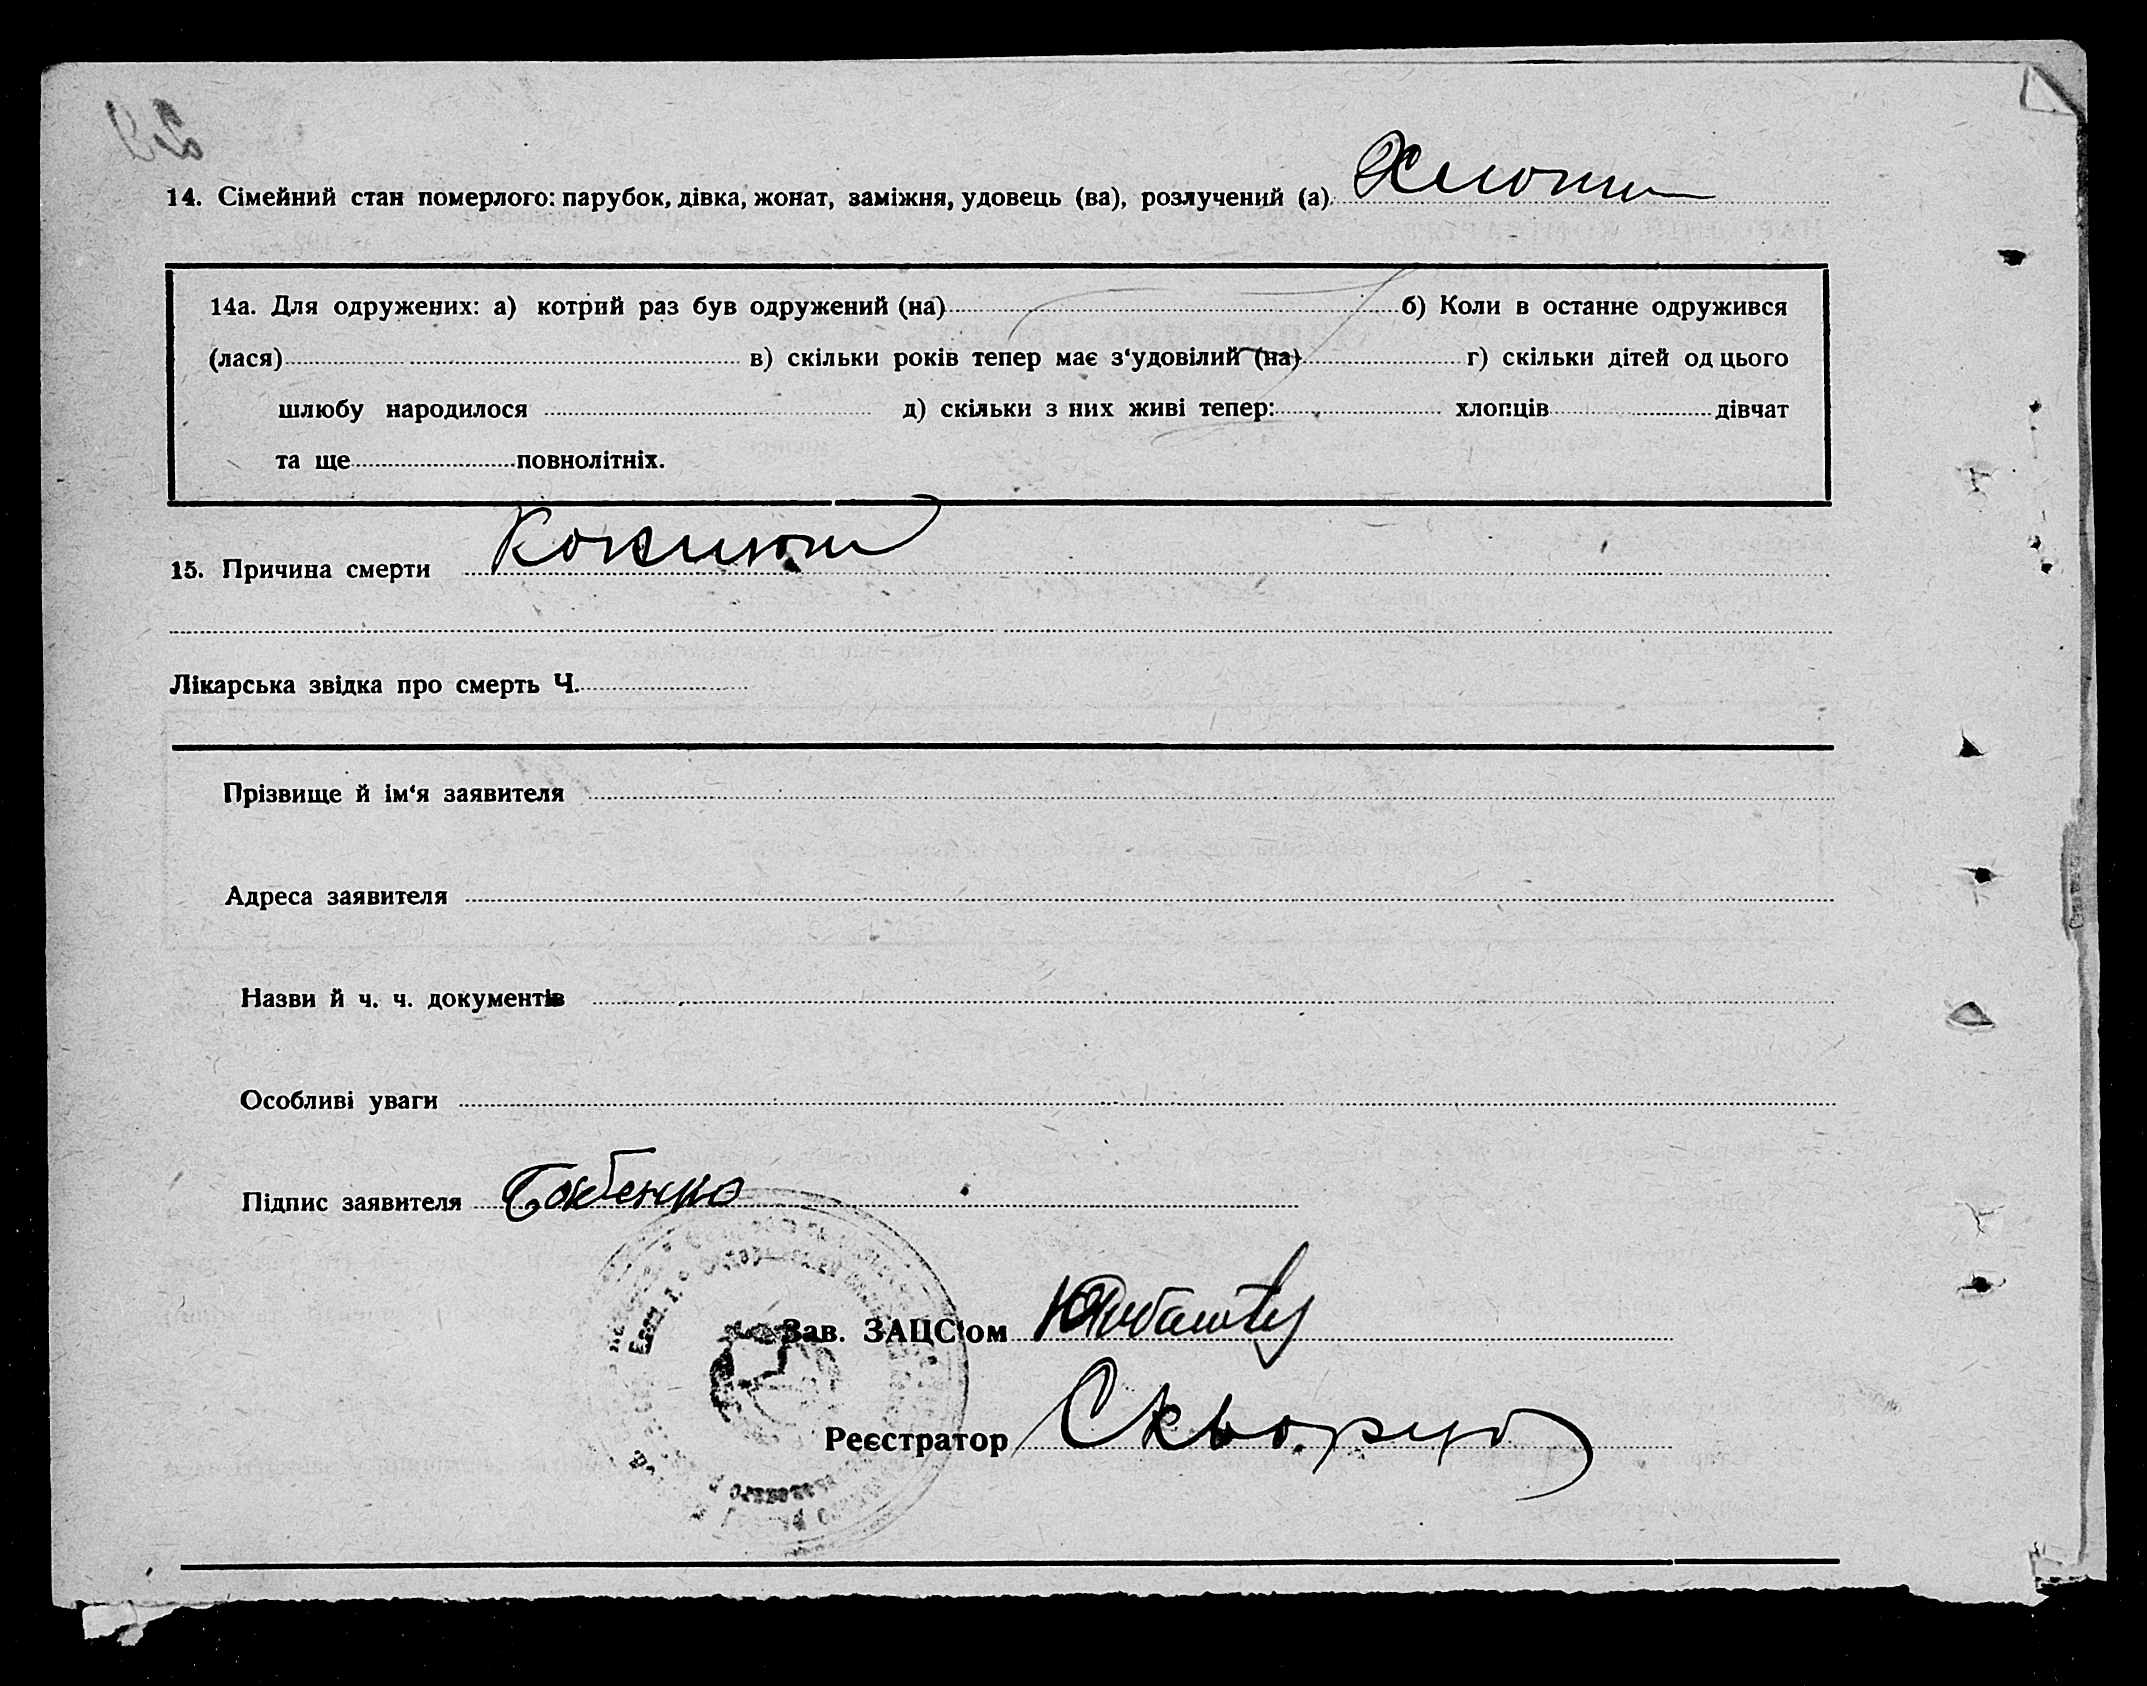 29
14. Сімейний стан померлого: парубок, дівка, жонат, заміжня, удовець (ва), розлучений (а).
14а. Для одружених: а) котрий раз був одружений (на) б) Коли в останне одружився
(лася) в) скільки років тепер має з‘удовілий (на) г) скільки дітей од цього
шлюбу народилося д) скільки з них живі тепер: хлопців дівчат
та ще повнолітніх.
15. Причина смерти Коклюш
Лікарська звідка про смерть Ч.
Прізвище й ім‘я заявителя
Адреса заявителя
Назви й ч. ч. документів
Особливі уваги
Підпис заявителя
Зав. ЗАЦС‘ом
Реєстратор Скворцо